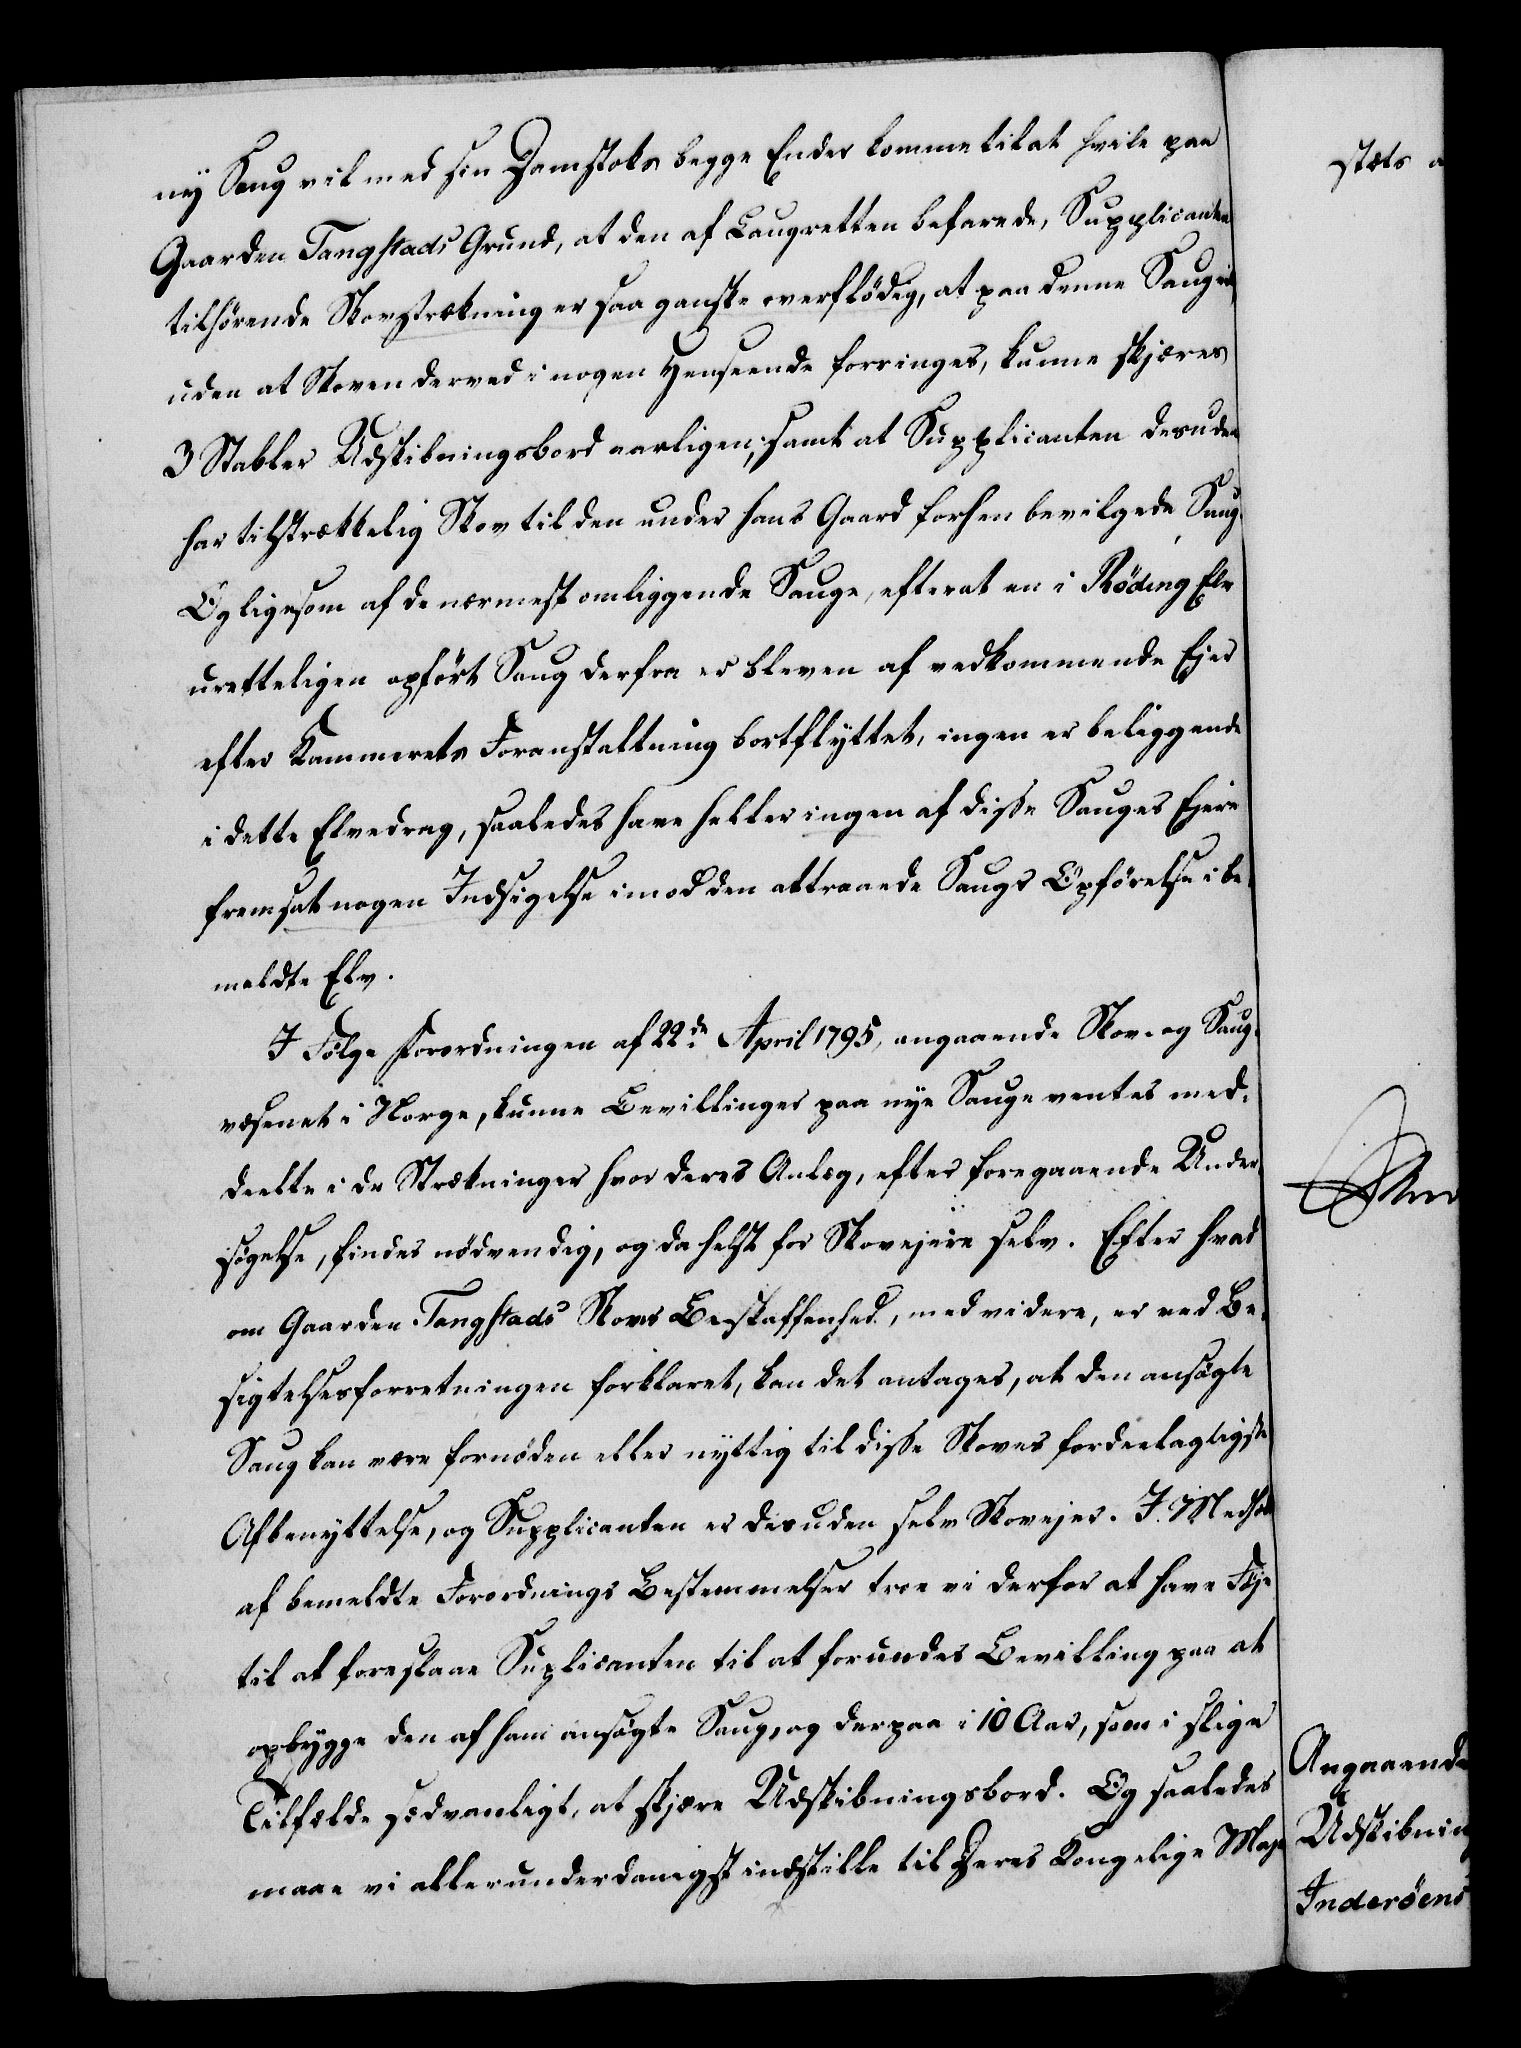 ny Saug vil med sin Damstoks begge Ender komme til at hvile paa
Gaarden Tangstads Grund, at den af Laugretten befarede, Supplicanten
tilhørende Skovstrækning er saa ganske overflödig, at paa denne Saug vil,
uden at Skoven derved i nogen Henseende forringes, kunne skjæres
3 Stabler Udskibningsbord aarligen; samt at Supplicanten desuden
har tilstrækkelig Skov til den under hans Gaard forhen bevilgede Saug.
Og ligesom af de nærmest omliggende Sauge, efterat en i Röding Elv
uretteligen opført Saug derfra er bleven af vedkommende Ejer
efter Kammerets Foranstaltning bortflyttet, ingen er beliggende
i dette Elvedrag, saaledes have heller ingen af disse Sauges Ejere
fremsat nogen Indsigelse imod den attraaede Saugs Opförelse i be-
meldte Elv.
I Følge Forordningen af 22de April 1795, angaaende Skov- og Saug-
væsenet i Norge, kunne Bevillinger paa nye Sauge ventes med-
deelte i de Strækninger hvor deres Anlæg, efter foregaaende Under-
søgelse, findes nödvendig, og da helst for Skovejere selv. Efter hvad
om Gaarden Tangstads Skovs Beskaffenhed, med videre, er ved Be-
sigtelsesforretningen forklaret, kan det antages, at den ansøgte
Saug kan være fornöden eller nyttig til disse Skoves fordeelagtigste
Afbenyttelse, og Supplicanten er desuden selv Skovejer. I Medhold
af bemeldte Forordnings Bestemmelser troe vi derfor at have Föje
til at foreslaae Suplicanten til at forundes Bevilling paa at
opbygge den af ham ansøgte Saug, og derpaa i 10 Aar, som i slige
Tilfælde sædvanligt, at skjære Udskibningsbord. Og saaledes
maae vi allerunderdanigst indstille til Deres Kongelige Maje-
stæts a
Angaaende
Udskibning
Inderöens